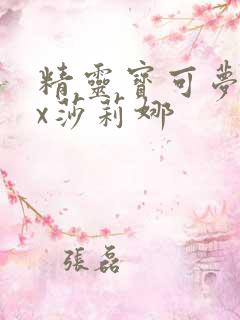 精靈寶可夢
x莎莉娜
張磊